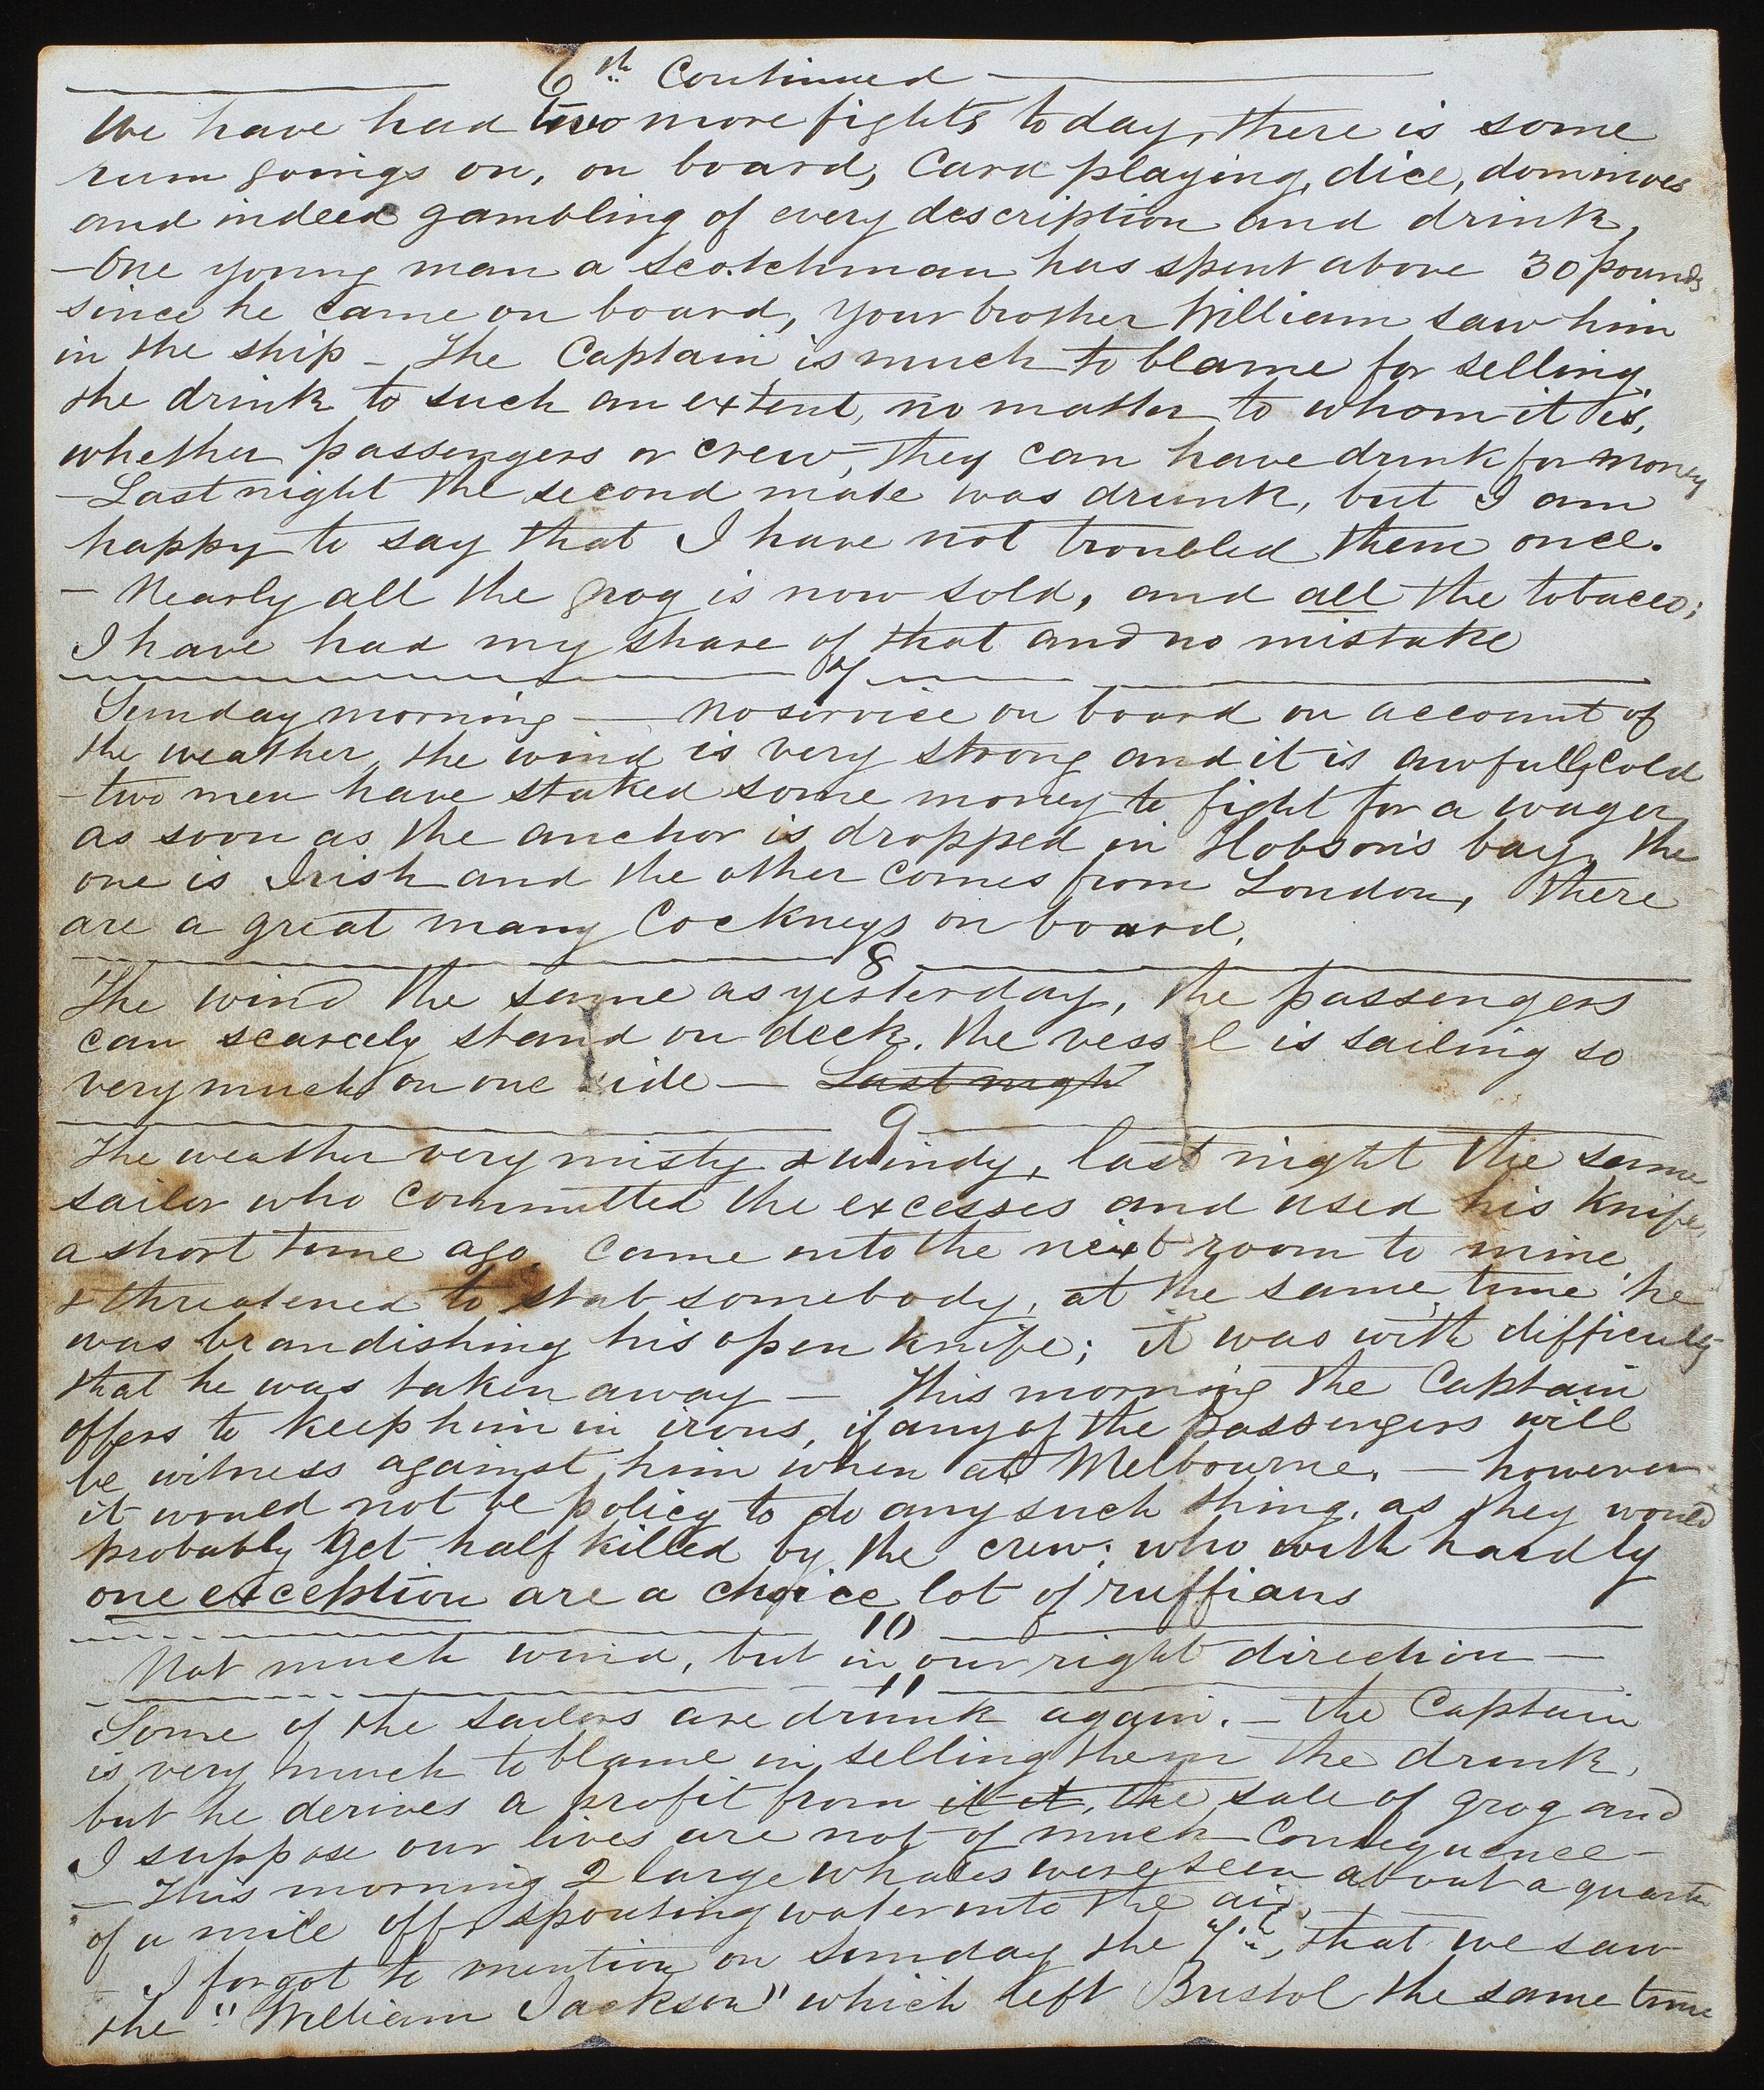 6th Continued
We have had two more fights today, there is some
rum goings on, on board, Card playing, dice, dominoes
and indeed gambling of every description and drink,
— One young man a Scotchman has spent above 30 pounds
since he came on board, your brother William saw him
in the ship — The Captain is much to blame for selling
the drink to such an extent, no matter to whom it is,
whether passengers or crew, they can have drink for money
— Last night the second mate was drunk, but I am
happy to say that I have not troubled them once.
— Nearly all the grog is now sold, and all the tobacco;
I have had my share of that and no mistake
7
Sunday morning — no service on board on account of
the weather, the wind is very strong and it is awfully cold
— two men have staked some money to fight for a wager
as soon as the anchor is dropped in Hobson's bay, the
one is Irish and the other comes from London, there
are a great many Cockneys on board.
8
The wind the same as yesterday, the passengers
can scarcely stand on deck. the vessel is sailing so
very much on one side — Last night
9
The weather very misty & windy, last night the same
sailor who committed the excesses and used his knife,
a short time ago, came into the next room to mine,
& threatened to stab somebody, at the same time he
was brandishing his open knife; it was with difficulty
that he was taken away — This morning the Captain
offers to keep him in irons, if any of the passengers will
be witness against him when at Melbourne. — however
it would not be policy to do any such thing, as they would
probably get half killed by the crew; who with hardly
one exception are a choice lot of ruffians
10
Not much wind, but in our right direction —
11
Some of the sailors are drunk again. — the Captain
is very much to blame in selling them the drink,
but he derives a profit from it it, the sale of grog and
I suppose our lives are not of much consequence —
— This morning 2 large whales were seen about a quarter
of a mile off spouting water into the air,
— I forgot to mention on Sunday the 7th, that we saw
the "William Jackson" which left Bristol the same time